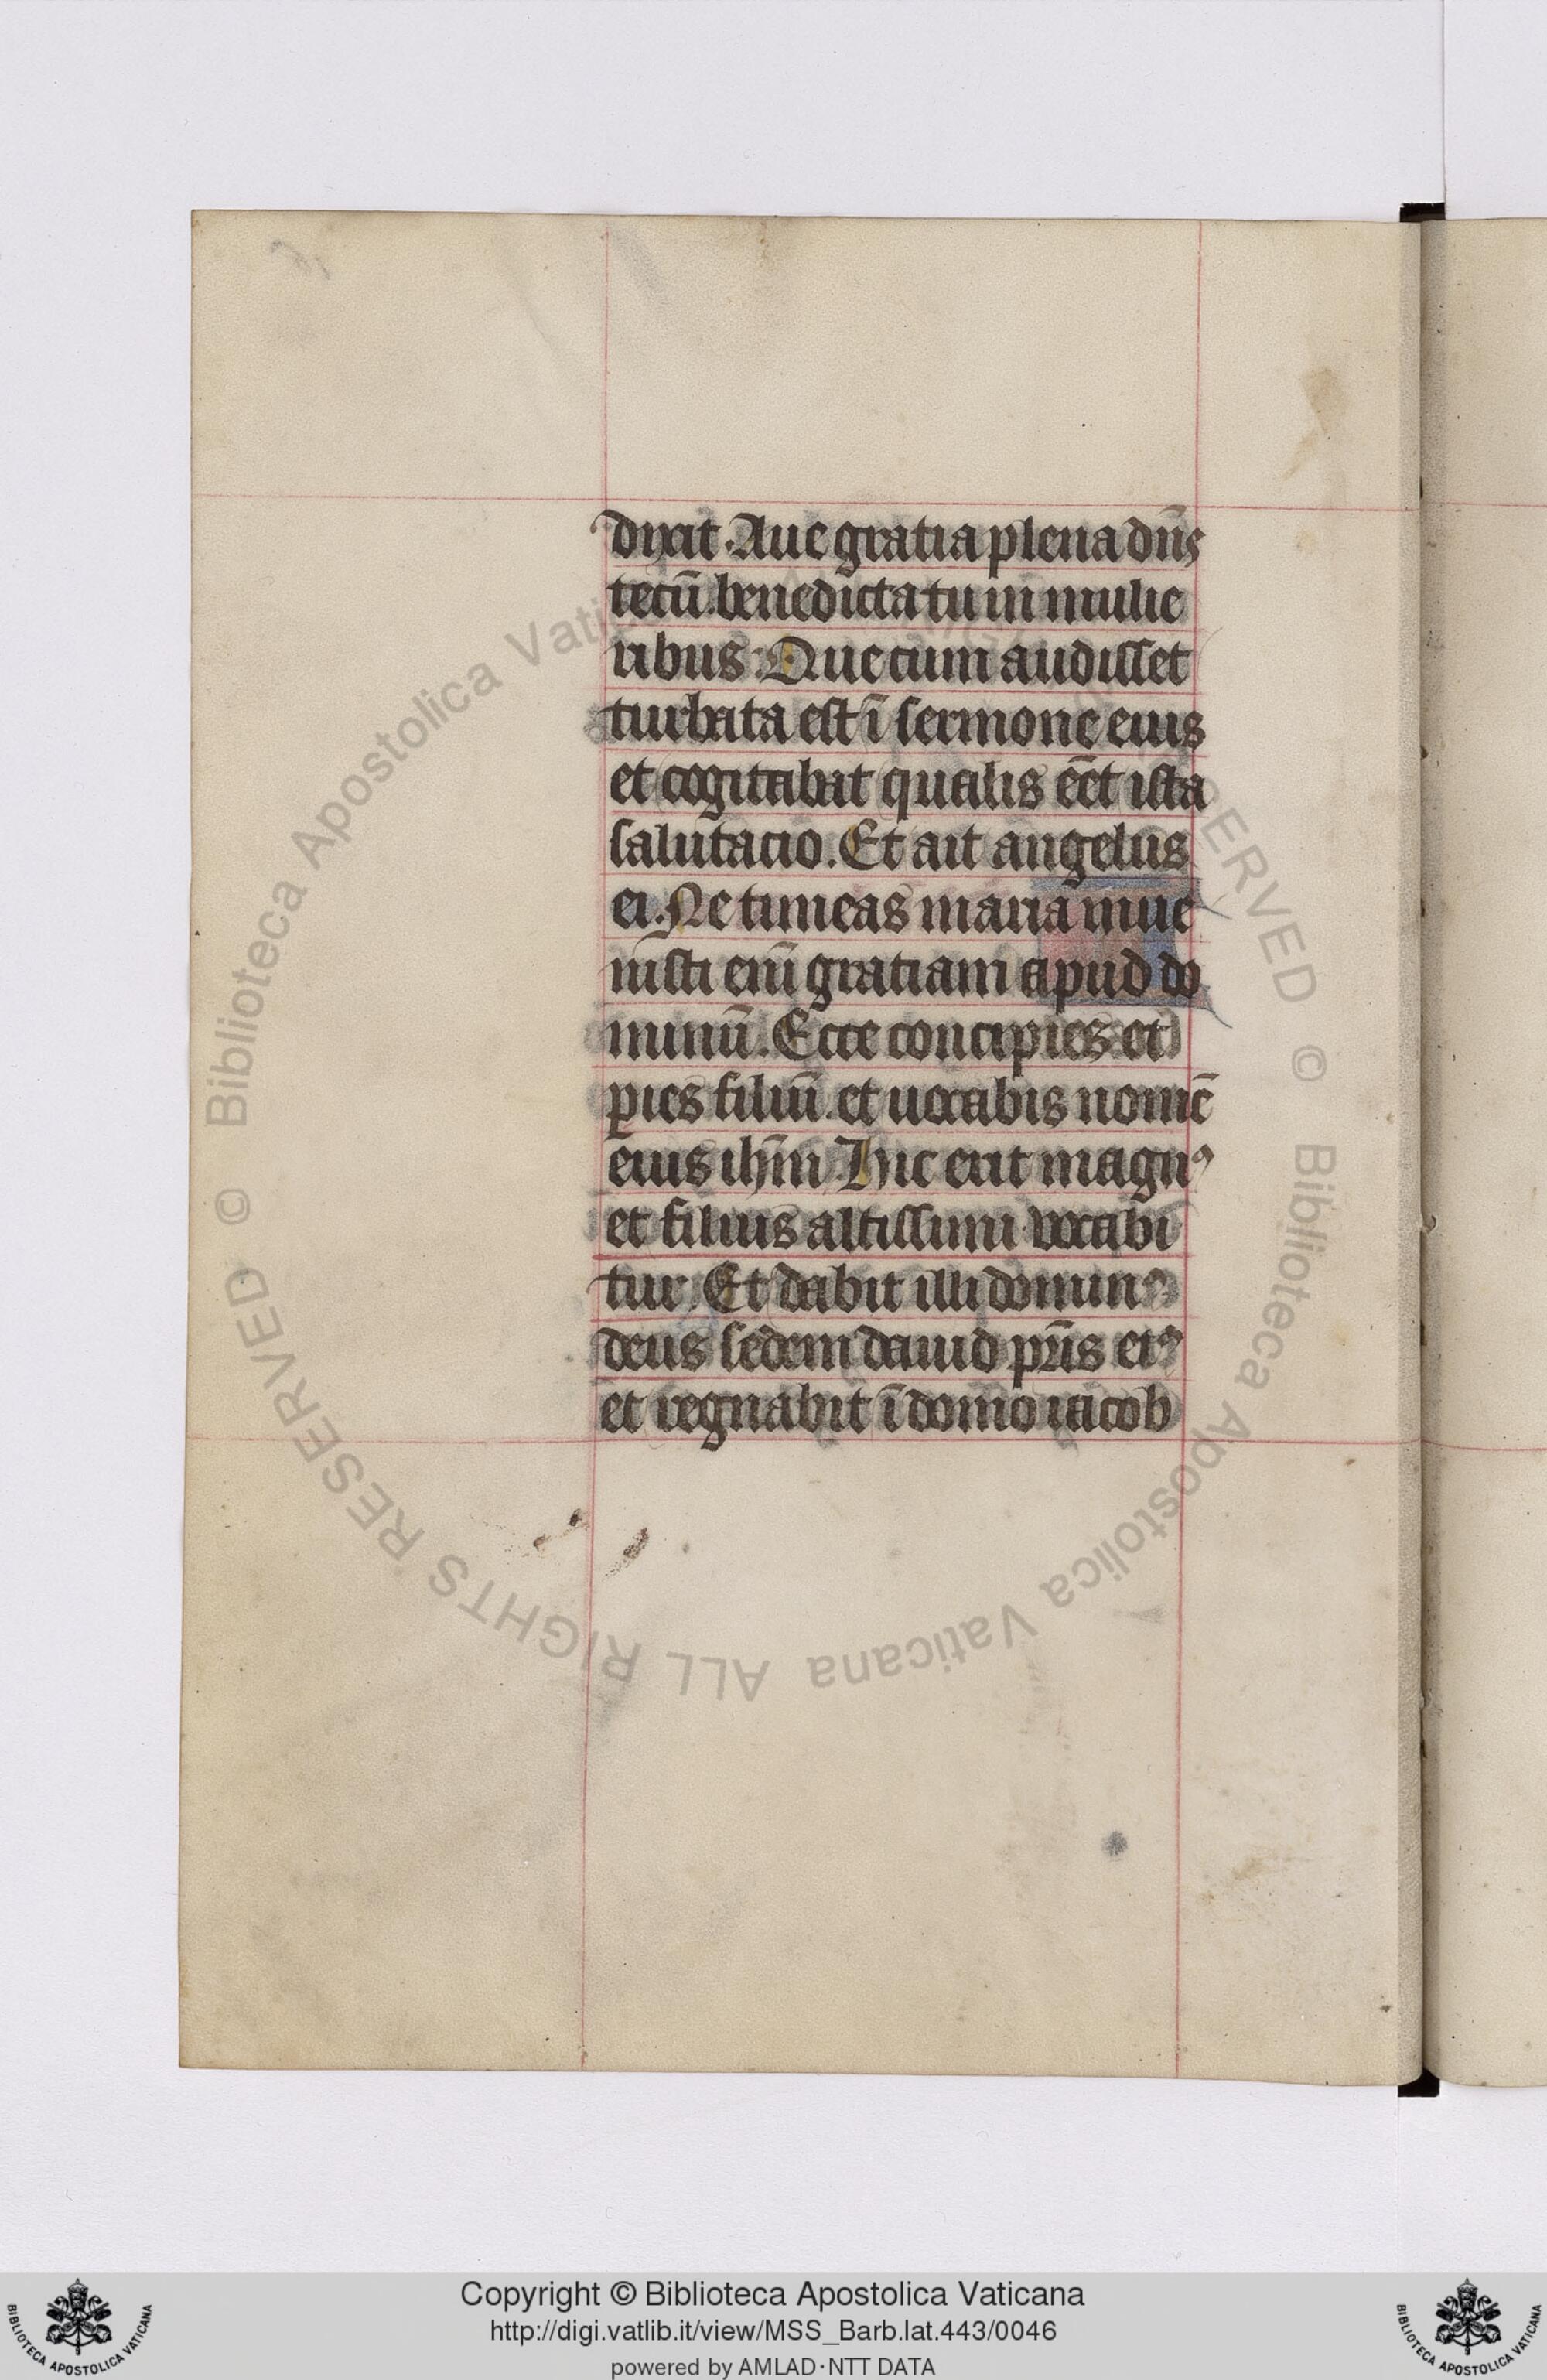 dixit. Aue gratia plena dn̄s
tecū. benedicta tu in mulie
ribus. Que cum audisset
turbata est ī sermone eius
et cogitabat qualis eēt ista
salutacio. Et ait angelus
ei. Ne timeas maria inue
nisti enī gratiam apud do
minū. Ecce concipies et
ꝑies filiū. et uocabis nomē
eius ihm̄. Hic erit magnꝰ
et filius altissimi vocabi
tur. Et dabit illi dominꝰ
deus sedem dauid pr̄is eiꝰ
et regnabit ī domo iacob
© Biblioteca Apostolica Vaticana ALL RIGHTS RESERVED
Copyright © Biblioteca Apostolica Vaticana
http://digi.vatlib.it/view/MSS_Barb.lat.443/0046
powered by AMLAD·NTT DATA
BIBLIOTECA APOSTOLICA VATICANA
BIBLIOTECA APOSTOLICA VATICANA